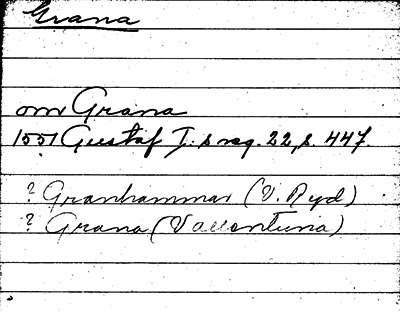 Grana
om Grana
1551 Gustaf I. s reg. 22, s. 447.
? Granhammar (V. Ryd)
? Grana (Vallentuna)